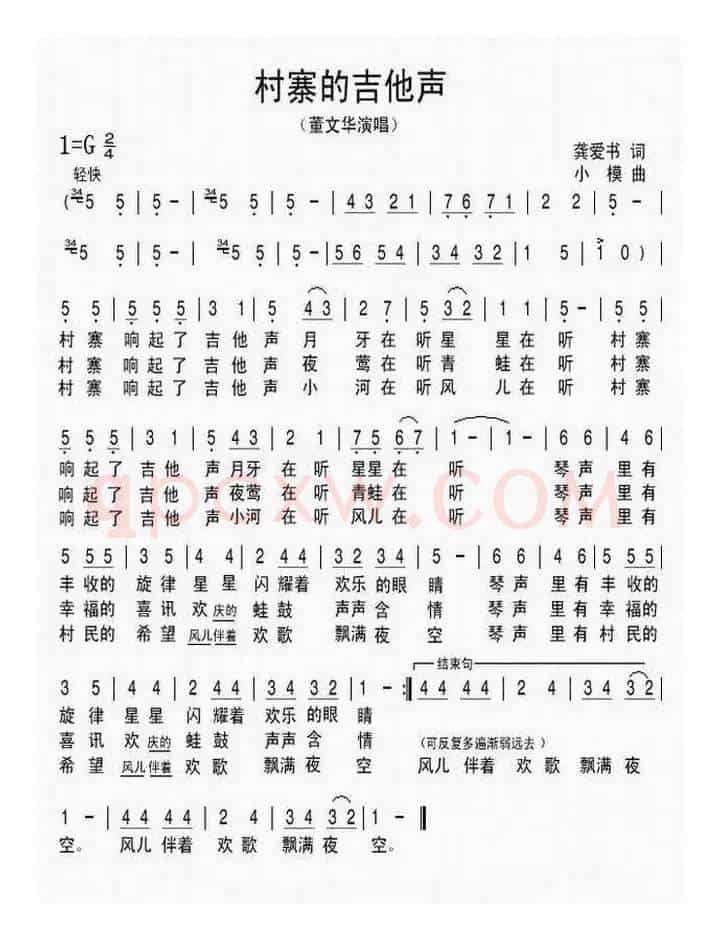 村寨的吉他声
（董文华演唱）
1=G 2/4
龚爱书 词
轻快
小 模 曲
( 34 5 5 | 5 - | 34 5 5 | 5 - | 43 21 | 76 71 | 2 2 | 5 - |
34 5 5 | 5 - | 34 5 5 | 5 - | 56 54 | 34 32 | 1 5 | 1 0 )
5 5 | 5 5 5 | 3 1 | 5 43 | 2 7 | 5 32 | 1 1 | 5 - | 5 5 |
村 寨 响 起 了 吉 他 声 月 牙 在 听 星 星 在 听 村 寨
村 寨 响 起 了 吉 他 声 夜 莺 在 听 青 蛙 在 听 村 寨
村 寨 响 起 了 吉 他 声 小 河 在 听 风 儿 在 听 村 寨
5 5 5 | 3 1 | 5 43 | 2 1 | 75 67 | 1 - | 1 - | 6 6 | 4 6 |
响 起 了 吉 他 声 月牙 在 听 星星 在 听 琴 声 里 有
响 起 了 吉 他 声 夜莺 在 听 青蛙 在 听 琴 声 里 有
响 起 了 吉 他 声 小河 在 听 风儿 在 听 琴 声 里 有
qpcxw.com
5 55 | 3 5 | 4 4 | 2 44 | 34 34 | 5 - | 6 6 | 4 6 | 5 55 |
丰 收的 旋 律 星 星 闪 耀着 欢乐 的眼 睛 琴 声 里 有 丰 收的
幸 福的 喜 讯 欢 庆的 蛙 鼓 声声 含 情 琴 声 里 有 幸 福的
村 民的 希 望 风儿 伴着 欢 歌 飘满 夜 空 琴 声 里 有 村 民的
结束句
3 5 | 4 4 | 2 44 | 34 32 | 1 - :‖ 44 44 | 2 4 | 34 32 |
旋 律 星 星 闪 耀着 欢乐 的眼 睛
喜 讯 欢 庆的 蛙 鼓 声声 含 情 （可反复多遍渐弱远去）
希 望 风儿 伴着 欢 歌 飘满 夜 空 风儿 伴着 欢 歌 飘满 夜
1 - | 44 44 | 2 4 | 34 32 | 1 - ‖
空。 风儿 伴着 欢 歌 飘满 夜 空。